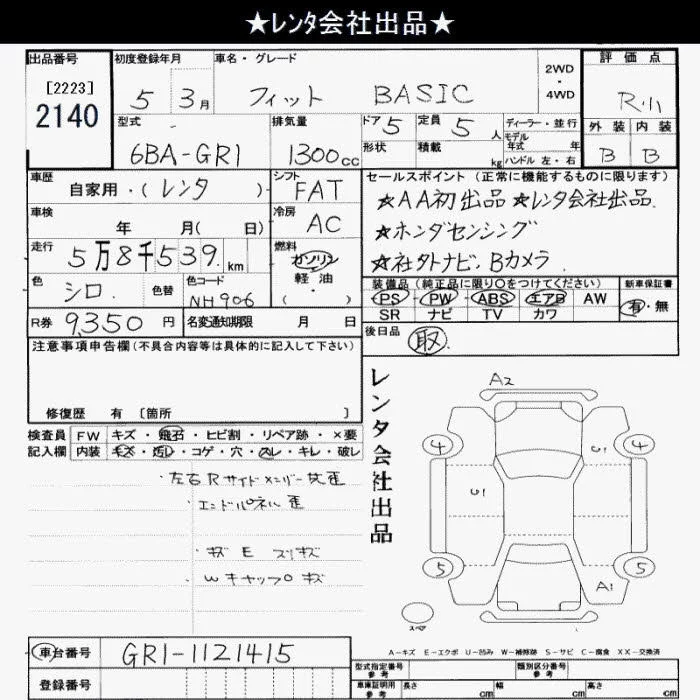 ★レンタ会社出品★
出品番号
[2223]
2140
初度登録年月
5 3月
車名・グレード
フィット BASIC
2WD
・
4WD
評価点
R.小
外装 内装
B B
型式
6BA-GR1
排気量
1300cc
ドア 5
形状
定員 5 人
積載 kg
ディーラー・並行
モデル年式 年
ハンドル 左・右
車歴
自家用・(レンタ)
シフト
FAT
車検
年 月( 日)
冷房
AC
走行
5万8千539 km
燃料
ガソリン
軽油
色
シロ
色替
色コード
NH906
R券 9,350円
名変通知期限 月 日
セールスポイント (正常に機能するものに限ります)
★AA初出品 ★レンタ会社出品.
★ホンダセンシング
★社外ナビ, Bカメラ.
装備品 (純正品に限り○をつけてください)
PS PW ABS エアB AW
SR ナビ TV カワ
新車保証書
有・無
後日品
取
注意事項申告欄(不具合内容等は具体的に記入して下さい)
修復歴 有 [箇所 ]
検査員記入欄
FW キズ・飛石・ヒビ割・リペア跡・×要
内装 キズ・汚レ・コゲ・穴・スレ・キレ・破レ
・左右Rサイドメンバー先歪
・エンドパネル 歪
・ガキズ E スリキズ
・Wキャップ キズ
レンタ会社出品
A2
4 4
U1
U1
5 5
A1
スペア
A-キズ E-エクボ U-凹み W-補修跡 S-サビ C-腐食 XX-交換済
車台番号
GR1-1121415
登録番号
型式指定番号
参考
類別区分番号
参考
車庫証明用
参考
長さ cm 幅 cm 高さ cm